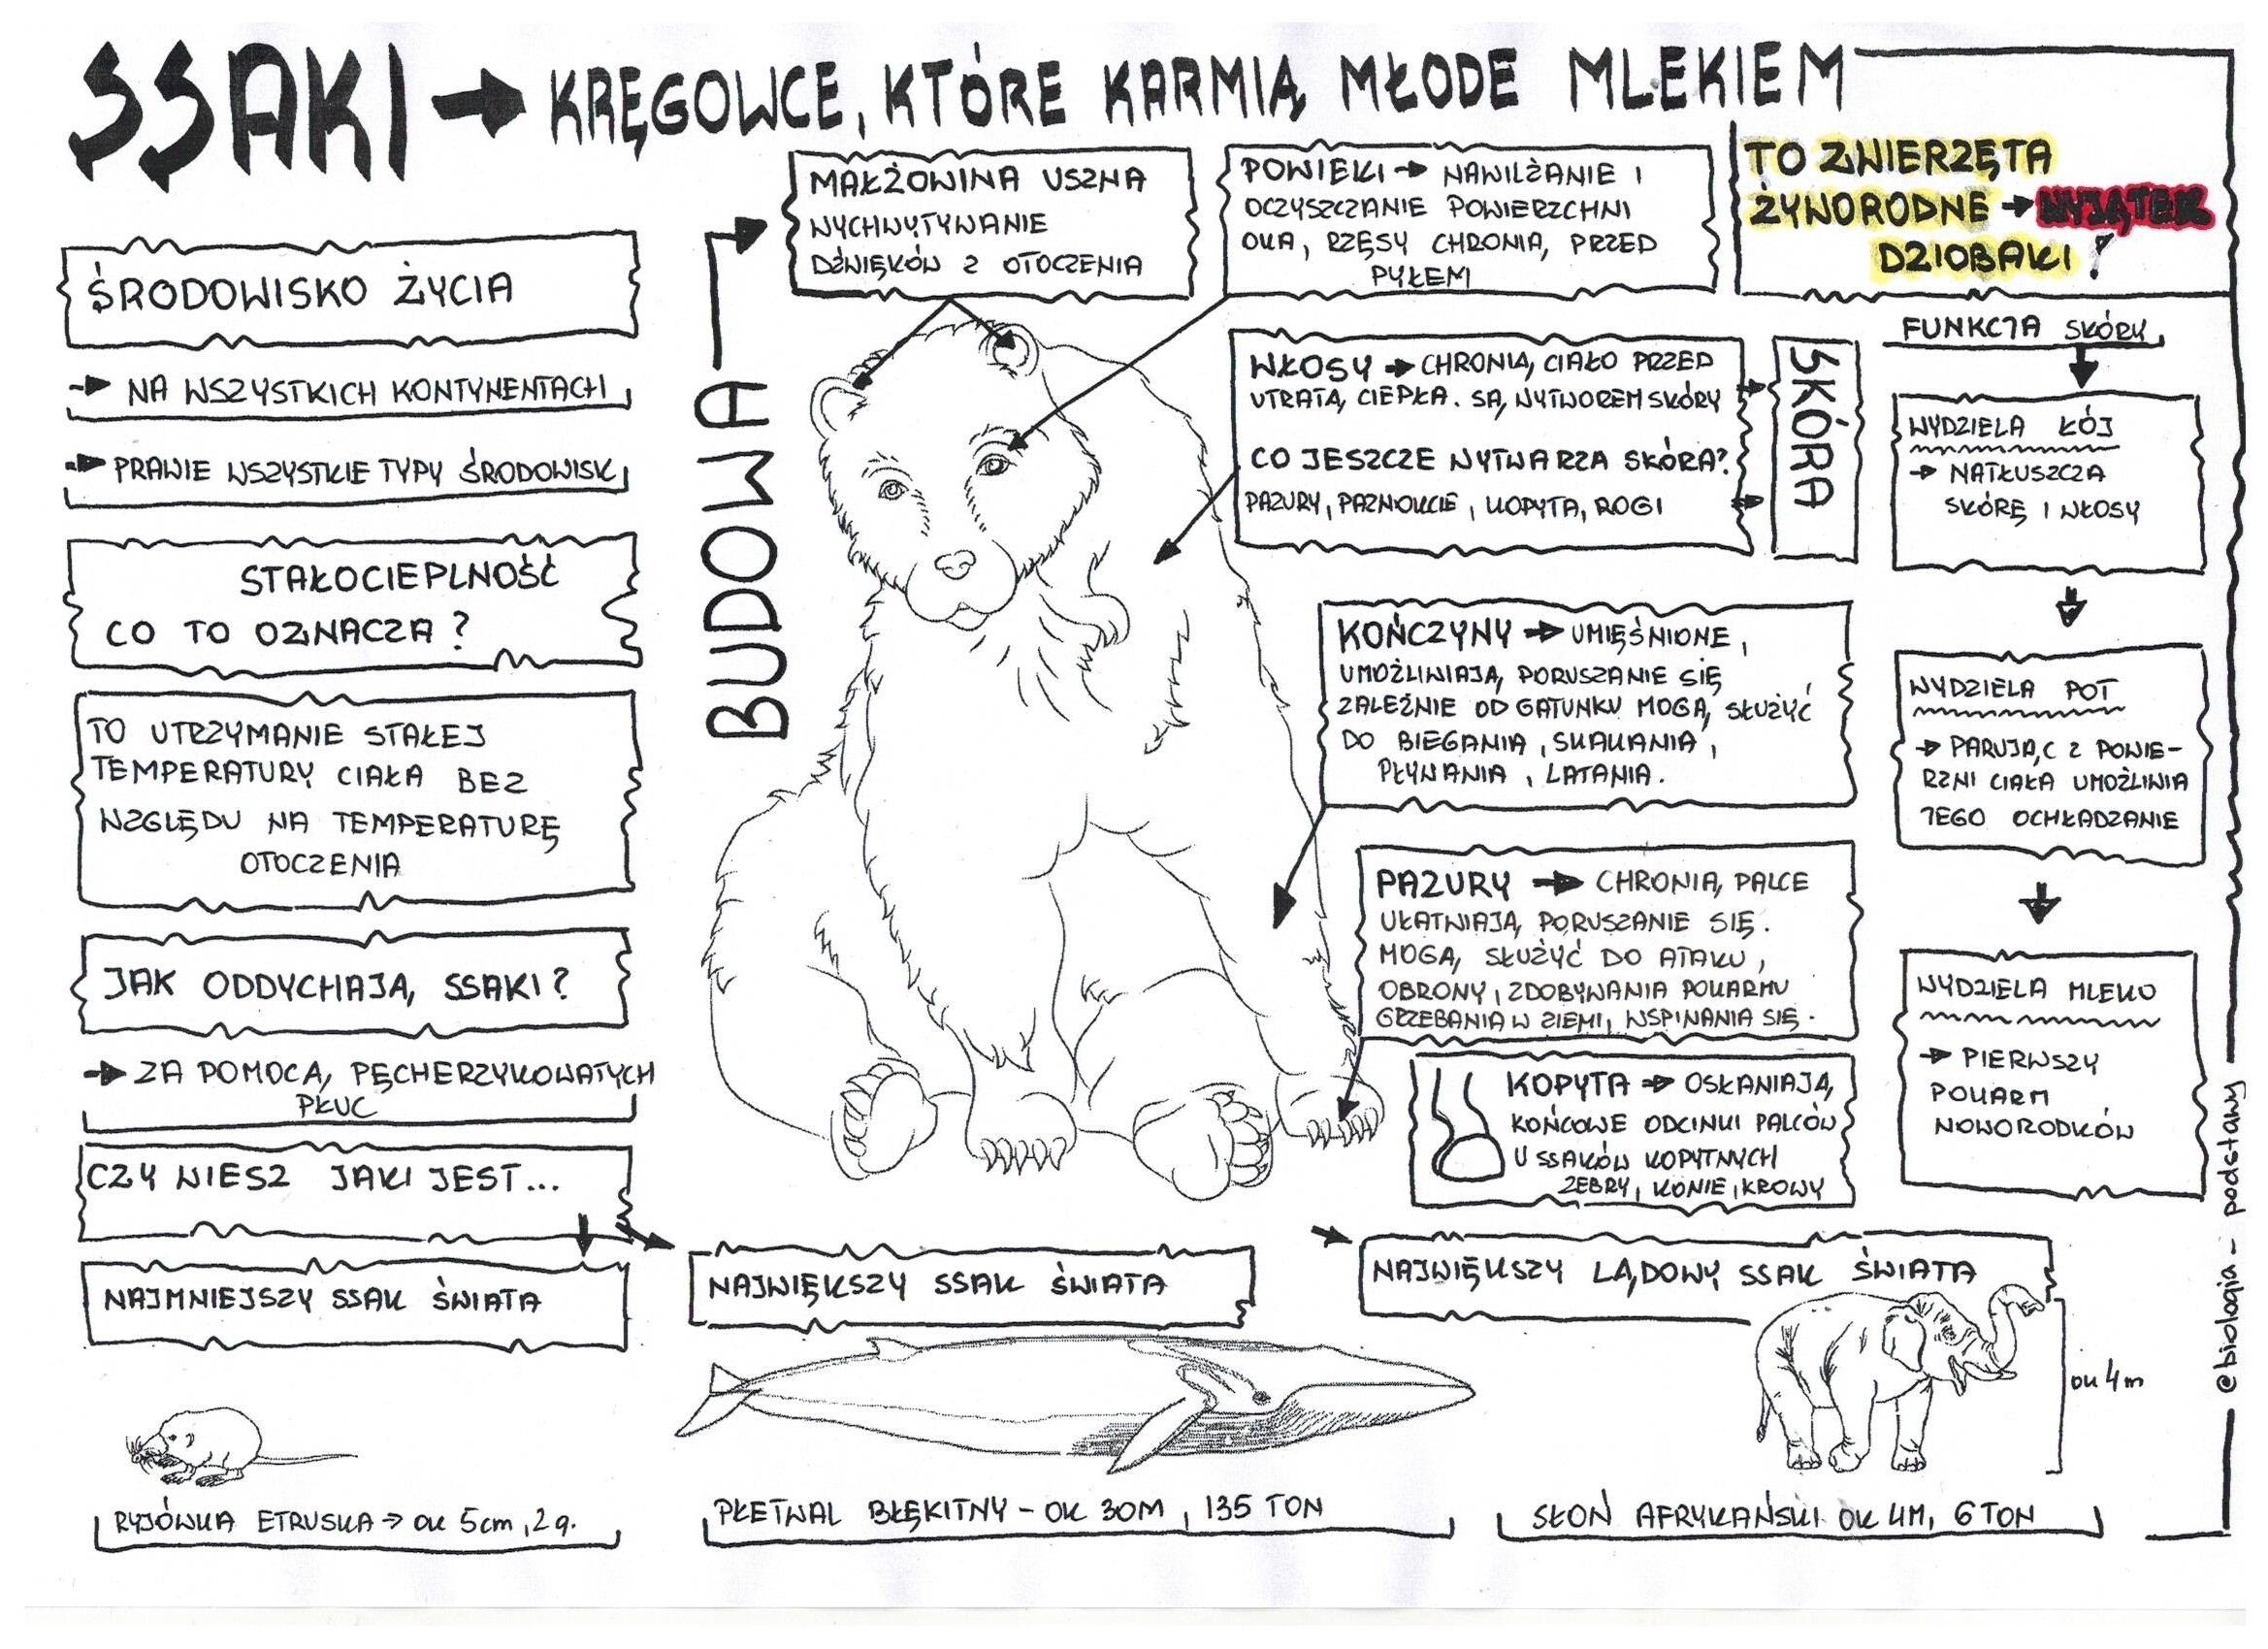 SSAKI → KRĘGOWCE, KTÓRE KARMIĄ MŁODE MLEKIEM
TO ZWIERZĘTA
ŻYWORODNE → WYJĄTEK
DZIOBAKI!
ŚRODOWISKO ŻYCIA
→ NA WSZYSTKICH KONTYNENTACH
→ PRAWIE WSZYSTKIE TYPY ŚRODOWISK
STAŁOCIEPLNOŚĆ
CO TO OZNACZA?
TO UTRZYMANIE STAŁEJ
TEMPERATURY CIAŁA BEZ
WZGLĘDU NA TEMPERATURĘ
OTOCZENIA
JAK ODDYCHAJĄ SSAKI?
→ ZA POMOCĄ PĘCHERZYKOWATYCH
PŁUC
CZY WIESZ JAKI JEST...
NAJMNIEJSZY SSAK ŚWIATA
RYJÓWKA ETRUSKA → ok 5cm, 2g.
BUDOWA
MAŁŻOWINA USZNA
WYCHWYTYWANIE
DŹWIĘKÓW Z OTOCZENIA
POWIEKI → NAWILŻANIE I
OCZYSZCZANIE POWIERZCHNI
OKA, RZĘSY CHRONIĄ PRZED
PYŁEM
WŁOSY → CHRONIĄ CIAŁO PRZED
UTRATĄ CIEPŁA. SĄ WYTWOREM SKÓRY
CO JESZCZE WYTWARZA SKÓRA?
PAZURY, PAZNOKCIE, KOPYTA, ROGI
SKÓRA
KOŃCZYNY → UMIĘŚNIONE,
UMOŻLIWIAJĄ PORUSZANIE SIĘ
ZALEŻNIE OD GATUNKU MOGĄ SŁUŻYĆ
DO BIEGANIA, SKAKANIA,
PŁYWANIA, LATANIA.
PAZURY → CHRONIĄ PALCE
UŁATWIAJĄ PORUSZANIE SIĘ.
MOGĄ SŁUŻYĆ DO ATAKU,
OBRONY, ZDOBYWANIA POKARMU
GRZEBANIA W ZIEMI, WSPINANIA SIĘ.
KOPYTA → OSŁANIAJĄ
KOŃCOWE ODCINKI PALCÓW
U SSAKÓW KOPYTNYCH
ZEBRY, KONIE, KROWY
FUNKCJA SKÓRY
WYDZIELA ŁÓJ
→ NATŁUSZCZA
SKÓRĘ I WŁOSY
WYDZIELA POT
→ PARUJĄC Z POWIE-
RZNI CIAŁA UMOŻLIWIA
JEGO OCHŁADZANIE
WYDZIELA MLEKO
→ PIERWSZY
POKARM
NOWORODKÓW
NAJWIĘKSZY SSAK ŚWIATA
PŁETWAL BŁĘKITNY - OK 30M, 135 TON
NAJWIĘKSZY LĄDOWY SSAK ŚWIATA
ok 4m
SŁOŃ AFRYKAŃSKI OK 4M, 6 TON
@biologia-podstawy